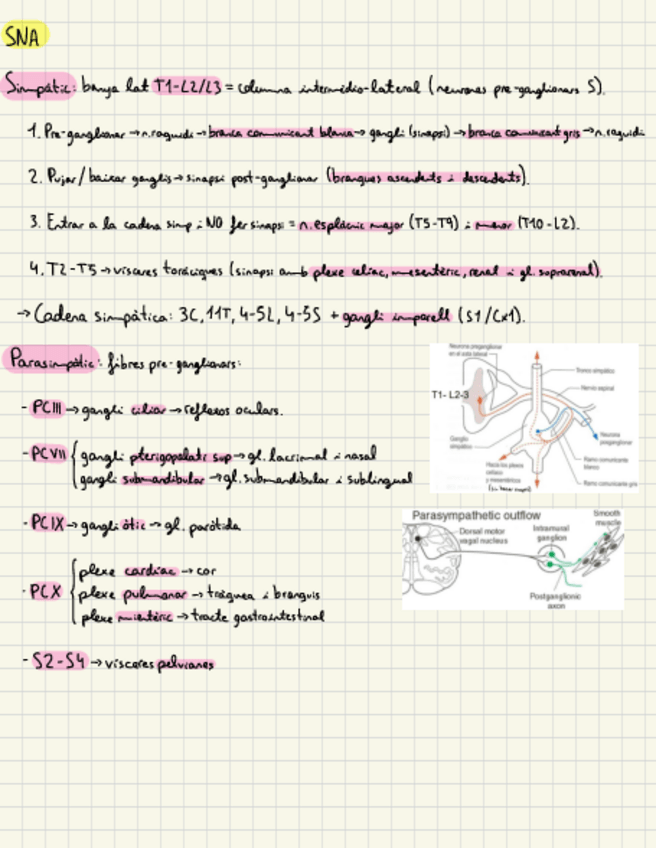 SNA
Simpàtic: banya lat T1-L2/L3 = columna intermedio-lateral (neurones pre-ganglionars S).
1. Pre-ganglionar → n.raquidi → branca comunicant blanca → gangli (sinapsi) → branca comunicant gris → n.raquidi
2. Pujar / baixar ganglis → sinapsi post-ganglionar (branques ascendents i descendents).
3. Entrar a la cadena simp i NO fer sinapsi = n.esplàcnic major (T5-T9) i menor (T10-L2).
4. T2-T5 → vísceres toràciques (sinapsi amb plexe celíac, mesentèric, renal i gl. suprarenal).
→ Cadena simpàtica: 3C, 11T, 4-5L, 4-5S + gangli imparell (S1/Cx1).
Parasimpàtic: fibres pre-ganglionars:
- PCIII → gangli ciliar → reflexos oculars.
- PCVII { gangli pterigopalatí sup → gl. lacrimal i nasal
gangli submandibular → gl. submandibular i sublingual
- PCIX → gangli òtic → gl. paròtida
- PCX { plexe cardíac → cor
plexe pulmonar → tràquea i bronquis
plexe mientèric → tracte gastrointestinal
- S2-S4 → vísceres pelvianes
Neurona preganglionar
en el asta lateral
Tronco simpático
T1- L2-3
Nervio espinal
Ganglio
simpático
Neurona
preganglionar
Ramo comunicante
blanco
Hacia los plexos
celíaco
y mesentéricos
Ramo comunicante gris
Parasympathetic outflow
Dorsal motor
vagal nucleus
Intramural
ganglion
Smooth
muscle
Postganglionic
axon